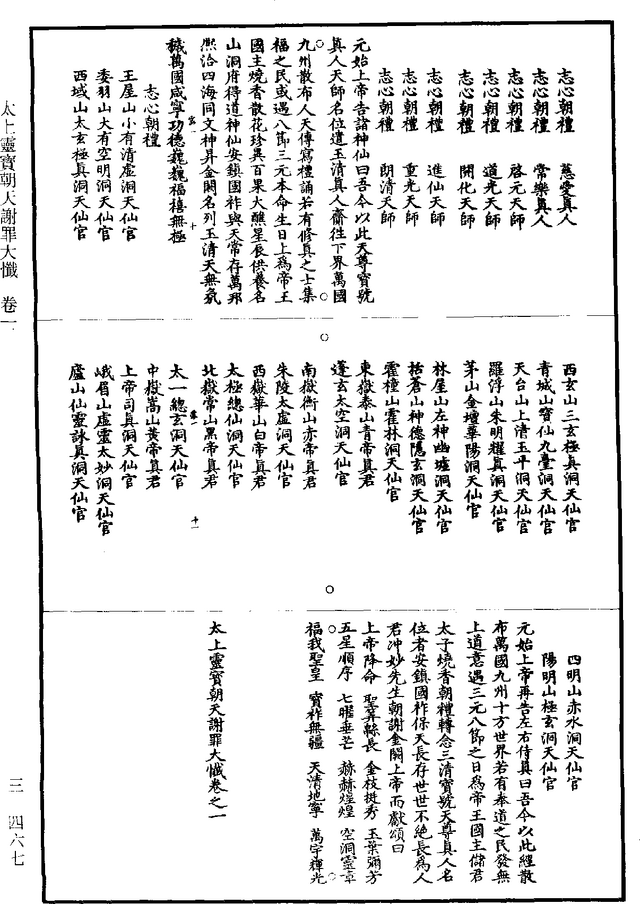 太上靈寶朝天謝罪大懺　卷一
三—四六七
志心朝禮　慈愛真人
志心朝禮　常樂真人
志心朝禮　啓元天師
志心朝禮　道光天師
志心朝禮　開化天師
志心朝禮　進仙天師
志心朝禮　重光天師
志心朝禮　朗清天師
元始上帝告諸神仙曰吾今以此天尊寶號
真人天師名位遣玉清真人齎往下界萬國
九州散布人天傳寫禮誦若有修真之士集
福之民或遇八節三元本命生日上爲帝王
國主燒香散花珍異百果大醮星辰供養名
山洞府得道神仙安鎮國祚與天常存萬邦
熙洽四海同文神昇金闕名列玉清天無氛
穢萬國咸寧功德巍巍福禧無極
志心朝禮
王屋山小有清虛洞天仙官
委羽山大有空明洞天仙官
西城山太玄極真洞天仙官
西玄山三玄極真洞天仙官
青城山寶仙九臺洞天仙官
天台山上清玉平洞天仙官
羅浮山朱明耀真洞天仙官
茅山金壇華陽洞天仙官
林屋山左神幽墟洞天仙官
括蒼山神德隱玄洞天仙官
霍橦山霍林洞天仙官
東嶽泰山青帝真君
蓬玄太空洞天仙官
南嶽衡山赤帝真君
朱陵太虛洞天仙官
西嶽華山白帝真君
太極總仙洞天仙官
北嶽常山黑帝真君
太一總玄洞天仙官
十一
中嶽嵩山黄帝真君
上帝司真洞天仙官
峨眉山虛靈太妙洞天仙官
廬山仙靈詠真洞天仙官
四明山赤水洞天仙官
陽明山極玄洞天仙官
元始上帝再告左右侍真曰吾今以此經散
布萬國九州十方世界若有奉道之民發無
上道意遇三元八節之日爲帝王國主儲君
太子燒香朝禮轉念三清寶號天尊真人名
位者安鎮國祚保天長存世世不絶長爲人
君沖妙先生朝謝金闕上帝而獻頌曰
上帝降命　聖筭緜長　金枝挺秀　玉葉彌芳
五星順序　七曜垂芒　赫赫煌煌　空洞靈章
福我聖皇　寶祚無疆　天清地寧　萬宇輝光
太上靈寶朝天謝罪大懺卷之一